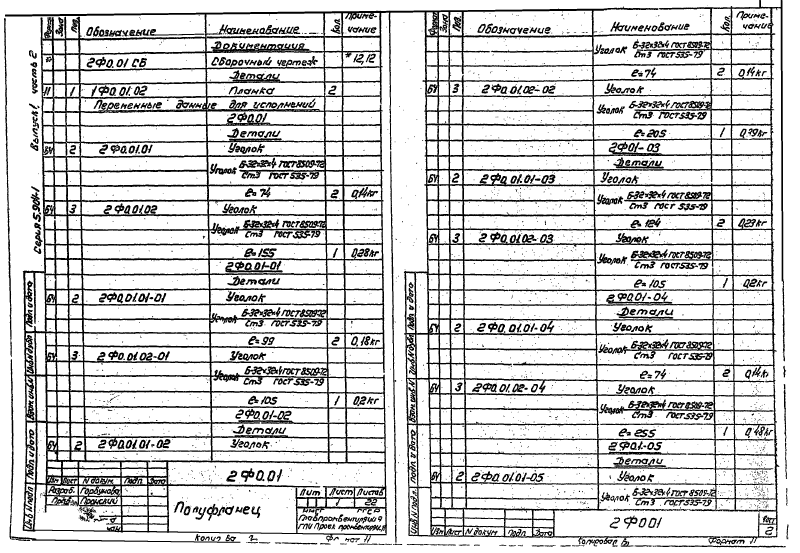 Формат Зона Поз. Обозначение Наименование Кол. Приме-чание
Документация
2Ф0.01 СБ Сборочный чертеж *12,12
Детали
11 1 1Ф0.01.02 Планка 2
Переменные данные для исполнений
2Ф0.01
Детали
БЧ 2 2Ф0.01.01 Уголок
Уголок Б-32×32×4 ГОСТ 8509-72
Ст3 ГОСТ 535-79
ℓ=74 2 0,14кг
БЧ 3 2Ф0.01.02 Уголок
Уголок Б-32×32×4 ГОСТ 8509-72
Ст3 ГОСТ 535-79
ℓ=155 1 0,28кг
2Ф0.01-01
Детали
БЧ 2 2Ф0.01.01-01 Уголок
Уголок Б-32×32×4 ГОСТ 8509-72
Ст3 ГОСТ 535-79
ℓ=99 2 0,18кг
БЧ 3 2Ф0.01.02-01 Уголок
Уголок Б-32×32×4 ГОСТ 8509-72
Ст3 ГОСТ 535-79
ℓ=105 1 0,2кг
2Ф0.01-02
Детали
БЧ 2 2Ф0.01.01-02 Уголок
Серия 5.904-1 Выпуск 1 часть 2
Инв.№подл. Подп и дата Взам.инв.№ Инв.№дубл. Подп и дата
2Ф0.01
Изм Лист № докум. Подп. Дата
Разраб. Горбунова
Полуфланец
Лит Лист Листов
1 22
Главпромвентиляция
ГПИ Проектпромвентиляция
Формат 11
Формат Зона Поз. Обозначение Наименование Кол. Приме-чание
Уголок Б-32×32×4 ГОСТ 8509-72
Ст3 ГОСТ 535-79
ℓ=74 2 0,14кг
БЧ 3 2Ф0.01.02-02 Уголок
Уголок Б-32×32×4 ГОСТ 8509-72
Ст3 ГОСТ 535-79
ℓ=205 1 0,39кг
2Ф01-03
Детали
БЧ 2 2Ф0.01.01-03 Уголок
Уголок Б-32×32×4 ГОСТ 8509-72
Ст3 ГОСТ 535-79
ℓ=124 2 0,23кг
БЧ 3 2Ф0.01.02-03 Уголок
Уголок Б-32×32×4 ГОСТ 8509-72
Ст3 ГОСТ 535-79
ℓ=105 1 0,2кг
2Ф0.01-04
Детали
БЧ 2 2Ф0.01.01-04 Уголок
Уголок Б-32×32×4 ГОСТ 8509-72
Ст3 ГОСТ 535-79
ℓ=74 2 0,14к.
БЧ 3 2Ф0.01.02-04 Уголок
Уголок Б-32×32×4 ГОСТ 8509-72
Ст3 ГОСТ 535-79
ℓ=255 1 0,48кг
2Ф0.1-05
Детали
БЧ 2 2Ф0.01.01-05 Уголок
Уголок Б-32×32×4 ГОСТ 8509-72
Ст3 ГОСТ 535-79
Инв.№подл. Подп и дата Взам.инв.№ Инв.№дубл. Подп и дата
Изм Лист № докум Подп. Дата
2Ф001
Лист
2
Копировал
Формат 11